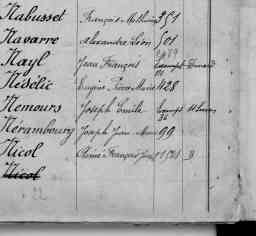 Nabusset François-Mathurin 351
Navarre Alexandre Léon 501
Nayl Jean François 
Nédélic Eugène Pierre Marie 428
Nemours Joseph Emile
Nérambourg Joseph Jean Marie 99
Nicol François 1501 B
Nicol